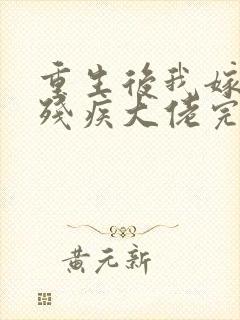 重生後我嫁
殘疾大佬完
黃元新